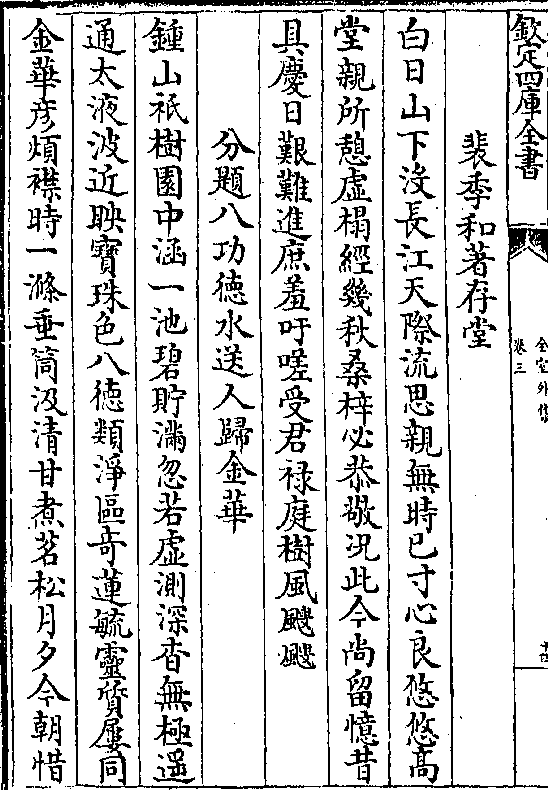 欽定四庫全書
全室外集
卷三
裴季和著存堂
白日山下没長江天際流思親無時已寸心良悠悠髙
堂親所憩虚榻經幾秋桑梓必恭敬况此今尚留憶昔
具慶日艱難進庶羞吁嗟受君禄庭樹風飂飂
分題八功徳水送人歸金華
鍾山祇樹園中涵一池碧貯滿忽若虚測深杳無極遥
通太液波近映寳珠色八徳類淨區竒蓮毓靈質屢同
金華彦煩襟時一滌垂筒汲清甘煮茗松月夕今朝惜